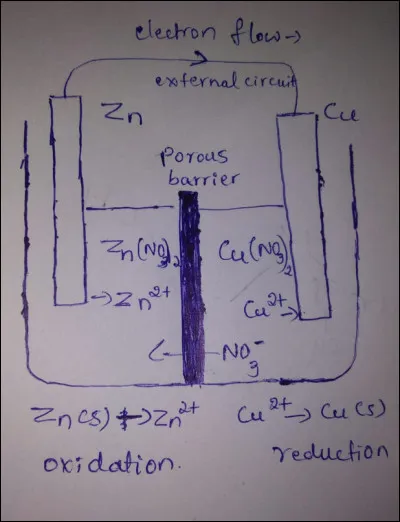 electron flow→
external circuit
Zn
Cu
Porous
barrier
Zn(NO3)2
Cu(NO3)2
→Zn2+
Cu2+→
←NO3-
Zn(s) → Zn2+
Cu2+ → Cu(s)
oxidation.
reduction